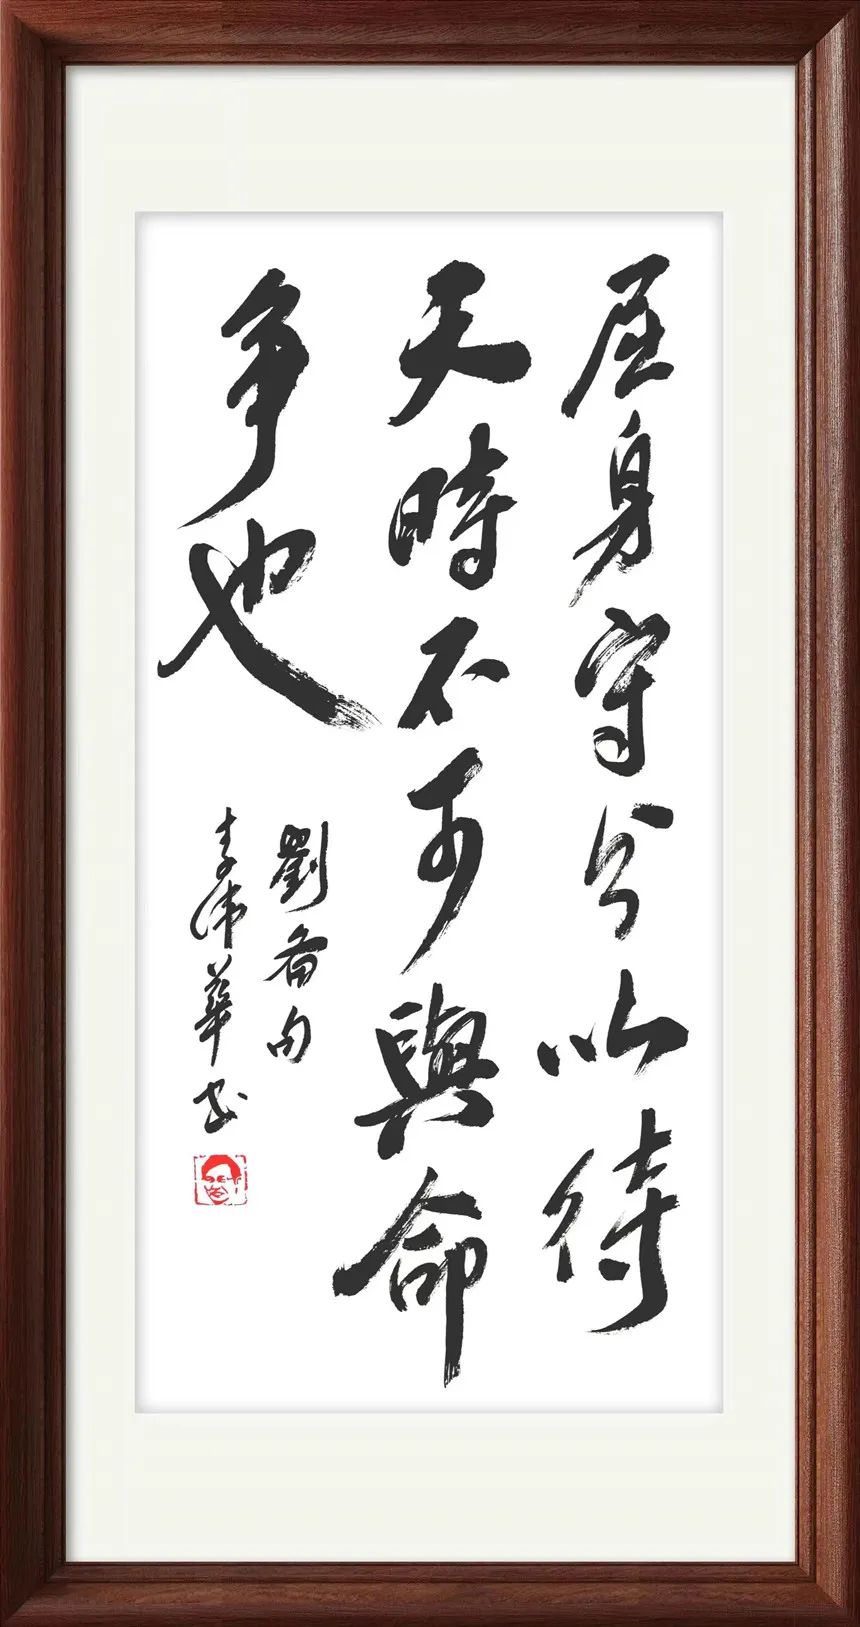 屈身守分以待
天時不可與命
争也
劉备句
李沛華书